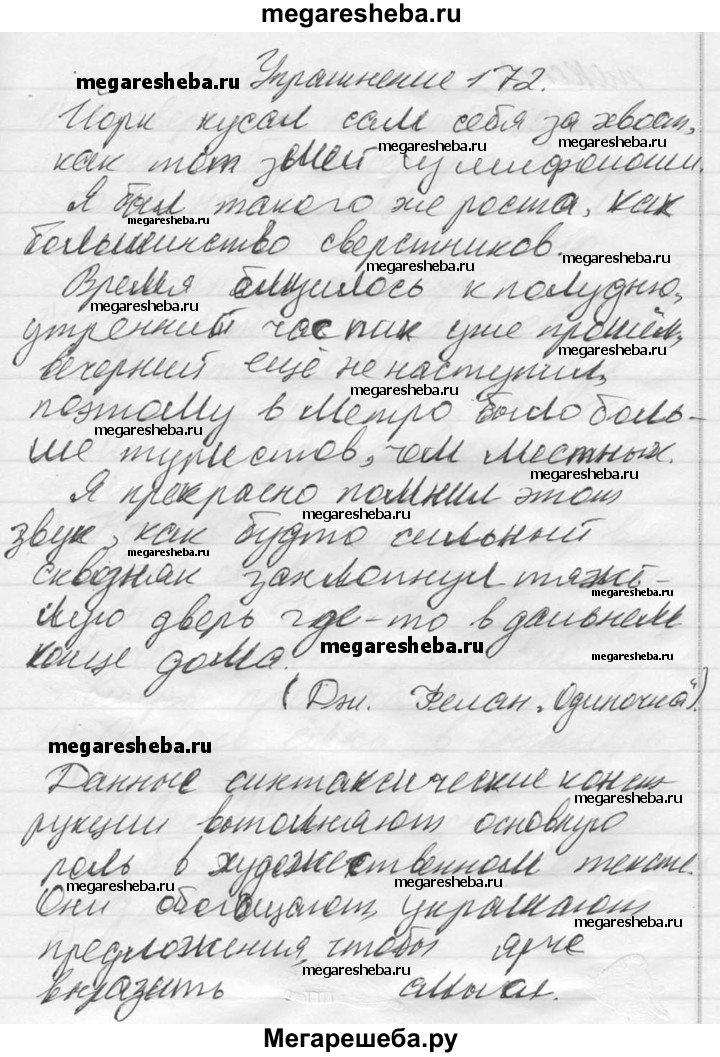 megaresheba.ru
Упражнение 172.
megaresheba.ru
Йорк кусал сам себя за хвост,
megaresheba.ru
как тот змей из мифологии.
megaresheba.ru
Я был такого же роста, как
megaresheba.ru
большинство сверстников.
megaresheba.ru
megaresheba.ru
Время близилось к полудню,
megaresheba.ru
утренний час пик уже прошёл,
megaresheba.ru
вечерний ещё не наступил,
megaresheba.ru
поэтому в метро было боль-
megaresheba.ru
ше туристов, чем местных.
megaresheba.ru
Я прекрасно помнил этот
звук, как будто сильный
megaresheba.ru
сквозняк захлопнул тяжё-
megaresheba.ru
лую дверь где-то в дальнем
megaresheba.ru
конце дома.
megaresheba.ru
(Дж. Фелан „Одиночка").
megaresheba.ru
Данные синтаксические конст
megaresheba.ru
рукции выполняют основную
роль в художественном тексте.
megaresheba.ru
megaresheba.ru
Они обогащают, украшают
megaresheba.ru
предложения, чтобы ярче
megaresheba.ru
выразить смысл.
Мегарешеба.ру